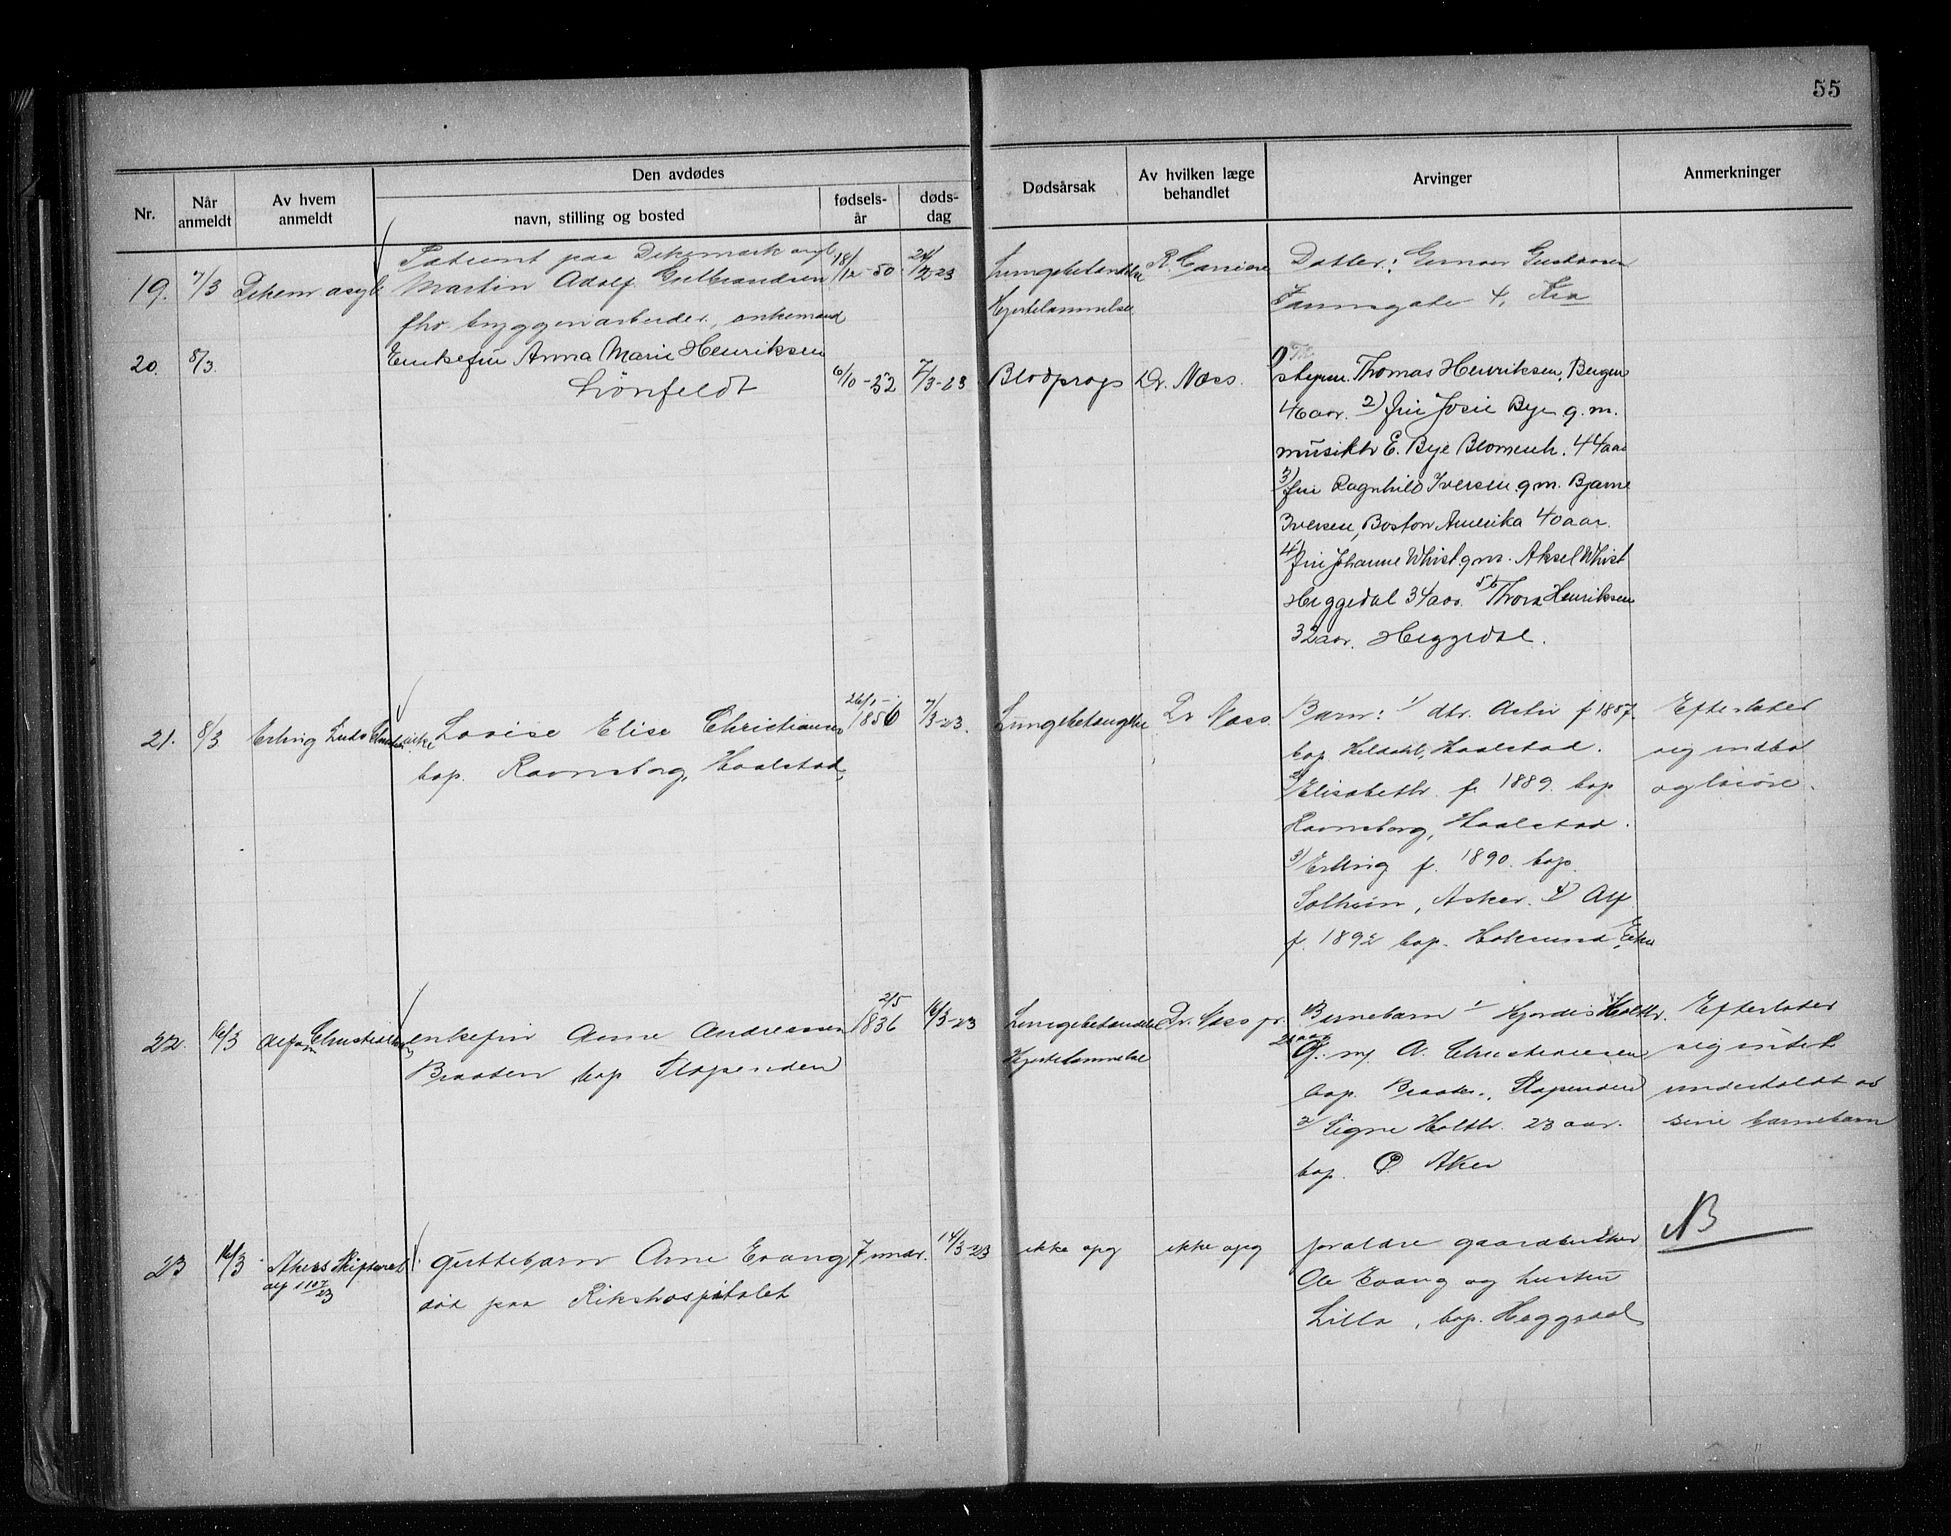 55
Den avdødes
Nr.
Når anmeldt
Av hvem anmeldt
navn, stilling og bosted
fødsels- år
døds- dag
Dødsårsak
Av hvilken læge behandlet
Arvinger
Anmerkninger
19. 7/3 Dikem asyl
Patient paa Dikemark asyl
Martin Adolf Gulbrandsen
fhv. bryggeriarbeider, enkemand
18/12-50
2-23
Lungebetændelse
Hjertelammelse
Datter:
4, Kra
20. 8/3.
Enkefru Anna Marie Henriksen
Lønfeldt
6/10-52 7/3-23 Blodprop Dr. Næss.
1)
styrm. Thomas Henriksen, Bergen
46 aar. 2) fru Josie Bye g.m.
musiktr E. Bye Blomenh. 44 aar
3) fru Ragnhild Iversen g.m. Bjarne
Iversen, Boston Amerika 40 aar.
4) fru Johanne Whist g.m. Aksel Whist
Heggedal 34 aar. 5) Thora Henriksen
32 aar. Heggedal.
21. 8/3 Erling
Lovise Elise Christiansen
bop. Ravnsborg, Hvalstad,
1856 7/3-23. Lungebetændelse Dr Næss.
Barn: 1/ dtr. f 1887
bop. Hvalstad.
2) Elisabeth f. 1889. bop
Ravnsborg, Hvalstad.
3) Erling f. 1890. bop.
Solheim, Asker. 4) Alf
f. 1892 bop. Hokksund, Eker
Efterlater
sig indbo
og løsøre.
22. 16/3
enkefru Anne Andressen
Braaten bop Slependen
2/5
1836 16/3-23
Lungebetændelse
Hjertelammelse
Dr. Næss jr.
Barnebarn 1/ Hjørdis Holth.
G. m. A. Christiansen
bop. Braaten, Slependen
2/ Signe Holth. 23 aar.
bop. Aker
Efterlater
sig intet
underholdt av
sine barnebarn
23 16/3 Akers Skifteret
1107/23
guttebarn Arne Evang
død paa Rikshospitalet
7 mndr. 14/3-23 ikke opg ikke opg
forældre gaardbruker
Ole Evang og hustru
Lilla, bop. Heggedal
NB